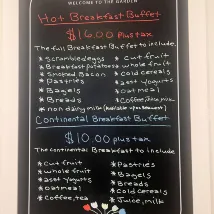 WELCOME TO THE GARDEN
Hot Breakfast Buffet
$16.00 plus tax
The full Breakfast Buffet to include,
* Scrambled eggs * Cut fruit
* Breakfast potatoes * whole fruit
* Smoked Bacon * Cold cereals
* Pastries * asst Yogurts
* Bagels * oatmeal
* Breads * Coffee, juice, milk
* non dairy milk (available upon request)
Continental Breakfast Buffet
$10.00 plus tax
The continental Breakfast to include
* Cut fruit * Pastries
* whole fruit * Bagels
* asst Yogurts * Breads
* oatmeal * Cold cereals
* Coffee, tea * Juice, milk